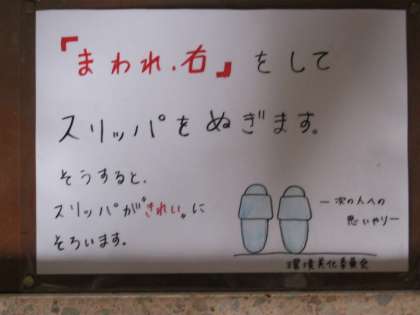 『まわれ、右』をして
スリッパをぬぎます。
そうすると、
スリッパが"きれい"に
そろいます。
―次の人への
思いやり―
環境美化委員会